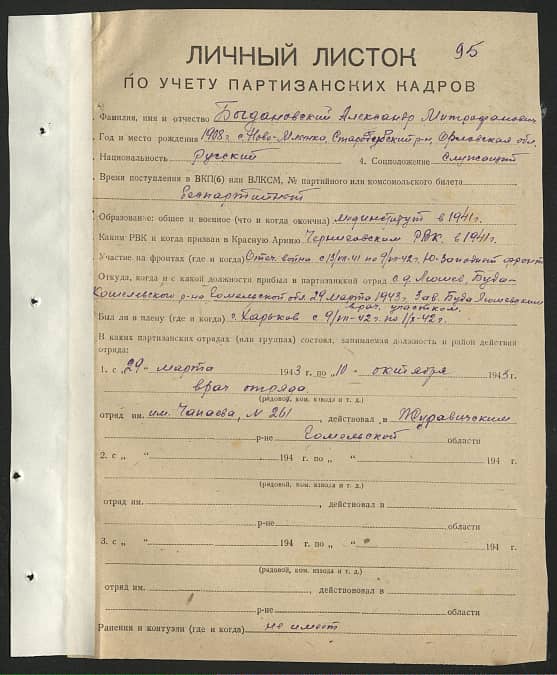 95
ЛИЧНЫЙ ЛИСТОК
ПО УЧЕТУ ПАРТИЗАНСКИХ КАДРОВ
Фамилия, имя и отчество Богдановский Александр Митрофанович
Год и место рождения 1908 г. с. Ново- Орловская обл.
Национальность Русский 4. Соцположение Служащий
Время поступления в ВКП(б) или ВЛКСМ, № партийного или комсомольского билета
беспартийный
Образование: общее и военное (что и когда окончил) мединститут в 1941 г.
Каким РВК и когда призван в Красную Армию Черниговским РВК в 1941 г.
Участие на фронтах (где и когда) Отеч. война с 13/VII-41 по 9/VII-42 г. Ю-Западный фронт
Откуда, когда и с какой должности прибыл в партизанский отряд с д. Люшев, Буда-
Кошелевского р-на Гомельской обл. 29 марта 1943 г. Зав. Буда Люшевским
врач. участком.
Был ли в плену (где и когда) г. Харьков с 9/VII-42 г. по 1/X-42 г.
В каких партизанских отрядах (или группах) состоял, занимаемая должность и район действия
отряда:
1. с „29" марта 1943 г. по „10" октября 1943 г.
врач отряда
(рядовой, ком. взвода и т. д.)
отряд им. Чапаева, № 261, действовал в Журавичским
р-не Гомельской области
2. с „ " 194 г. по „ " 194 г.
(рядовой, ком. взвода и т. д.)
отряд им. , действовал в
р-не области
3. с „ " 194 г. по „ " 194 г.
(рядовой, ком. взвода и т. д.)
отряд им. , действовал в
р-не области
Ранения и контузии (где и когда) не имеет